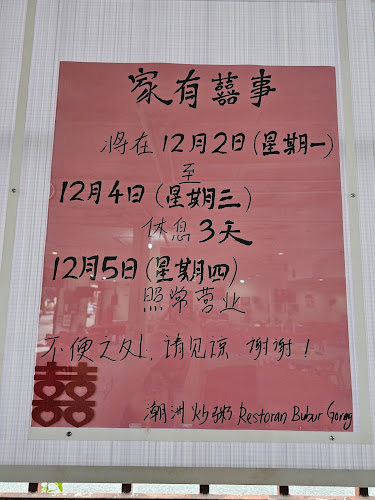 家有囍事
將在12月2日(星期一)
至
12月4日(星期三)
休息3天
12月5日(星期四)
照常营业
不便之处,请见谅 谢谢!
囍
潮洲炒粥 Restoran Bubur Goreng